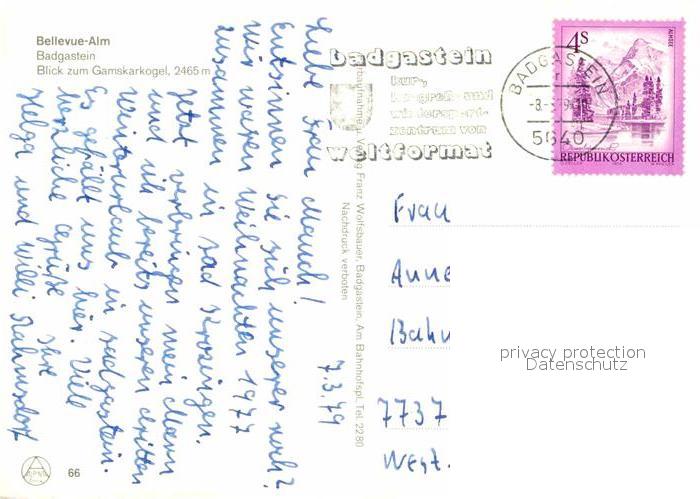 Bellevue-Alm
Badgastein
Blick zum Gamskarkogel, 2465 m
badgastein
kur-,
kongreß- und
wintersport-
zentrum von
weltformat
BADGASTEIN
5640
4 S
ALMSEE
REPUBLIK ÖSTERREICH
7.3.79
Liebe Frau
Entsinnen Sie sich unserer noch?
Wir waren Weihnachten 1977
zusammen in Bad Krozingen.
Jetzt verbringen mein Mann
und ich bereits unseren dritten
Winterurlaub in Badgastein.
Es gefällt uns hier. Viele
herzliche Grüße Ihre
Helga und Willi
Verlag Franz Wolfsbauer, Badgastein, Am Bahnhofspl. Tel. 2280
Nachdruck verboten
Frau
Anne
Bahn
7737
West.
privacy protection
Datenschutz
66